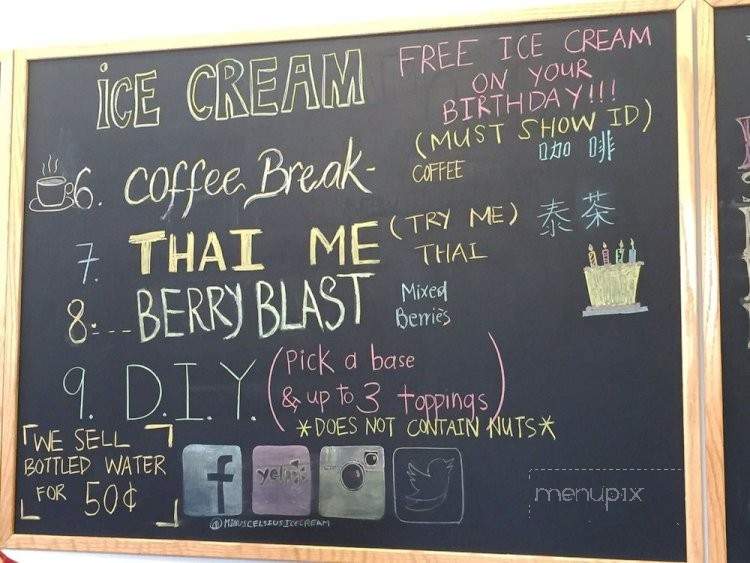 iCE CREAM
FREE ICE CREAM
ON YOUR
BIRTHDAY!!!
(MUST SHOW ID)
6. coffee Break-
COFFEE
咖啡
7. THAI ME (TRY ME)
THAI
泰茶
8:--- BERRY BLAST
Mixed
Berries
9. D.I.Y. (Pick a base
& up to 3 toppings)
*DOES NOT CONTAIN NUTS*
WE SELL
BOTTLED WATER
FOR 50¢
f
yelp
@MINUSCELSIUSICECREAM
menupix